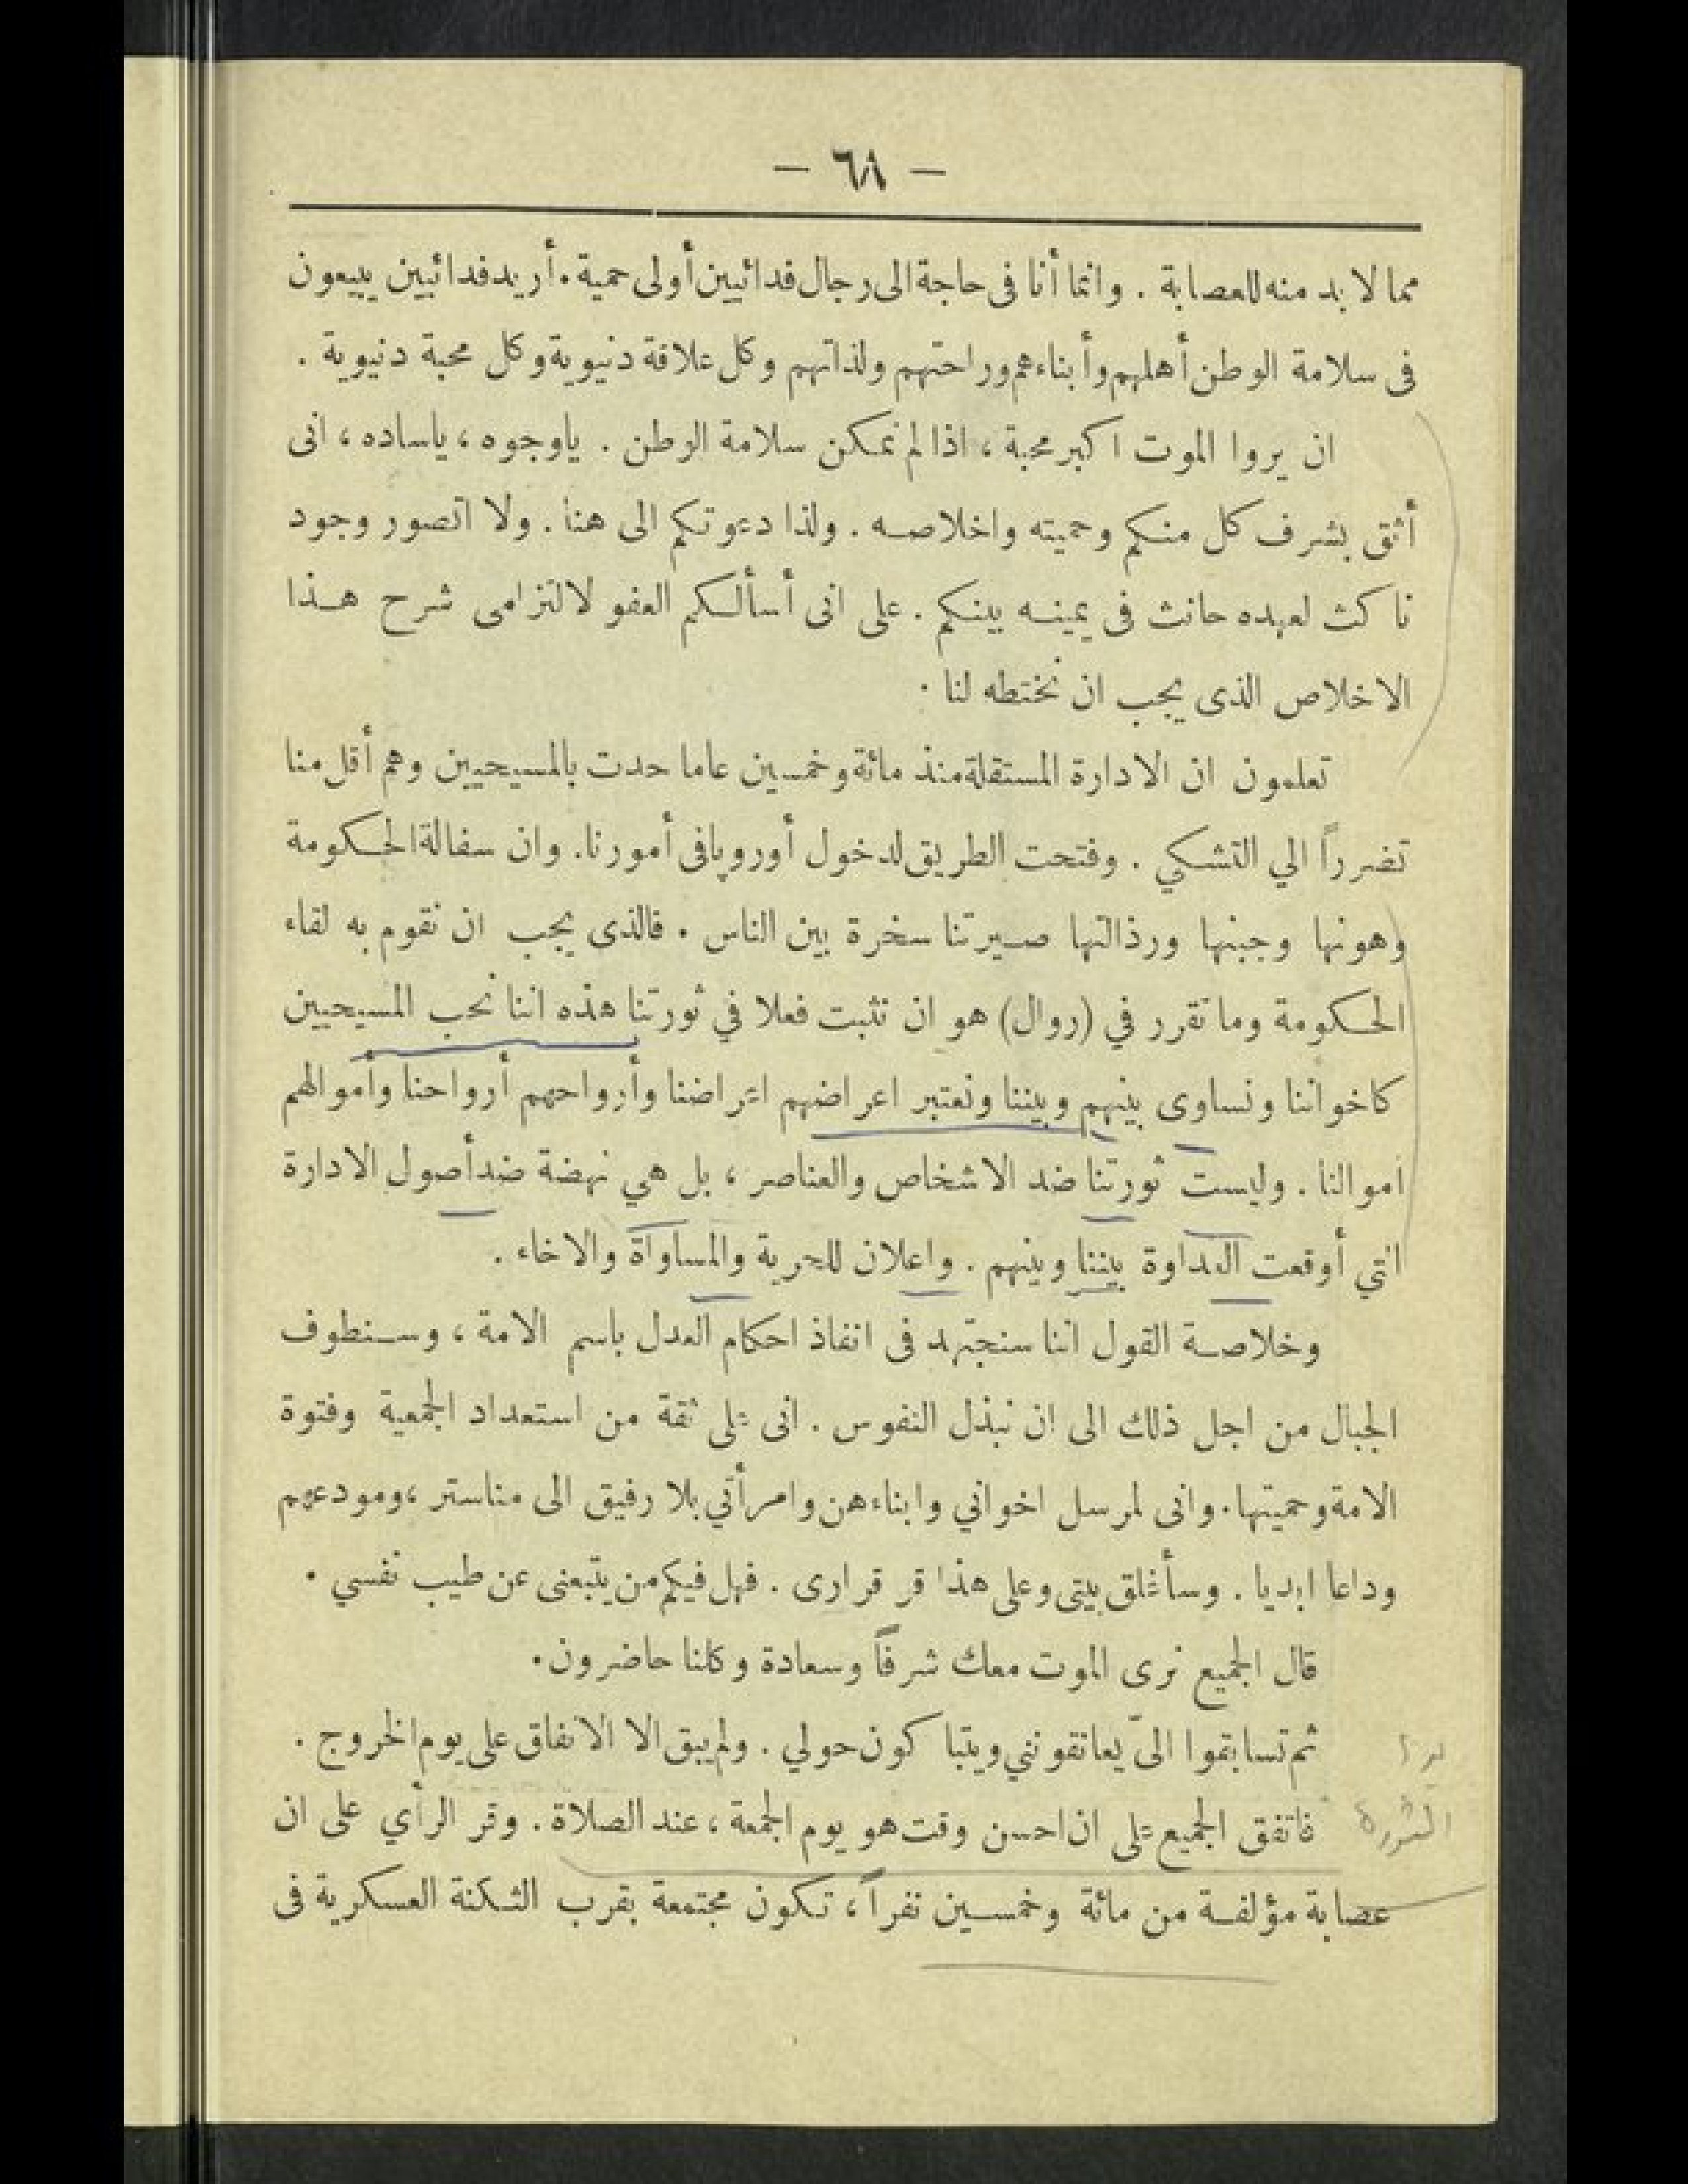 — ٦٨ —
مما لا بد منه للعصابة . وانما أنا فى حاجة الى رجال فدائيين أولى حمية . أريد فدائيين يبيعون
فى سلامة الوطن أهلهم وأبناءهم وراحتهم ولذاتهم وكل علاقة دنيوية وكل محبة دنيوية .
ان يروا الموت اكبر محبة ، اذا لم تمكن سلامة الوطن . ياوجوه ، ياساده ، انى
أثق بشرف كل منكم وحميته واخلاصه . ولذا دعوتكم الى هنا . ولا اتصور وجود
ناكث لعهده حانث فى يمينه بينكم . على انى أسألكم العفو لالتزامى شرح هذا
الاخلاص الذى يجب ان نختطه لنا .
تعلمون ان الادارة المستقلة منذ مائة وخمسين عاما حدت بالمسيحيين وهم أقل منا
تضرراً الي التشكي . وفتحت الطريق لدخول أوروپا فى أمورنا . وان سفالة الحكومة
وهونها وجبنها ورذالتها صيرتنا سخرة بين الناس . فالذى يجب ان نقوم به لقاء
الحكومة وما تقرر في (روال) هو ان نثبت فعلا في ثورتنا هذه اننا نحب المسيحيين
كاخواننا ونساوى بينهم وبيننا ونعتبر اعراضهم اعراضنا وأرواحهم أرواحنا وأموالهم
اموالنا . وليست ثورتنا ضد الاشخاص والعناصر ، بل هي نهضة ضد أصول الادارة
التي أوقعت العداوة بيننا وبينهم . واعلان للحرية والمساواة والاخاء .
وخلاصة القول اننا سنجتهد فى انفاذ احكام العدل باسم الامة ، وسنطوف
الجبال من اجل ذلك الى ان نبذل النفوس . انى على ثقة من استعداد الجمعية وفتوة
الامة وحميتها . وانى لمرسل اخواني وابناءهن وامرأتي بلا رفيق الى مناستر ، ومودعهم
وداعا ابديا . وسأغلق بيتى وعلى هذا قر قرارى . فهل فيكم من يتبعنى عن طيب نفسي .
قال الجميع نرى الموت معك شرفاً وسعادة وكلنا حاضرون .
ثم تسابقوا الىّ يعانقونني ويتباكون حولي . ولم يبق الا الاتفاق على يوم الخروج .
فاتفق الجميع على ان احسن وقت هو يوم الجمعة ، عند الصلاة . وقر الرأي على ان
عصابة مؤلفة من مائة وخمسين نفراً ، تكون مجتمعة بقرب الثكنة العسكرية فى